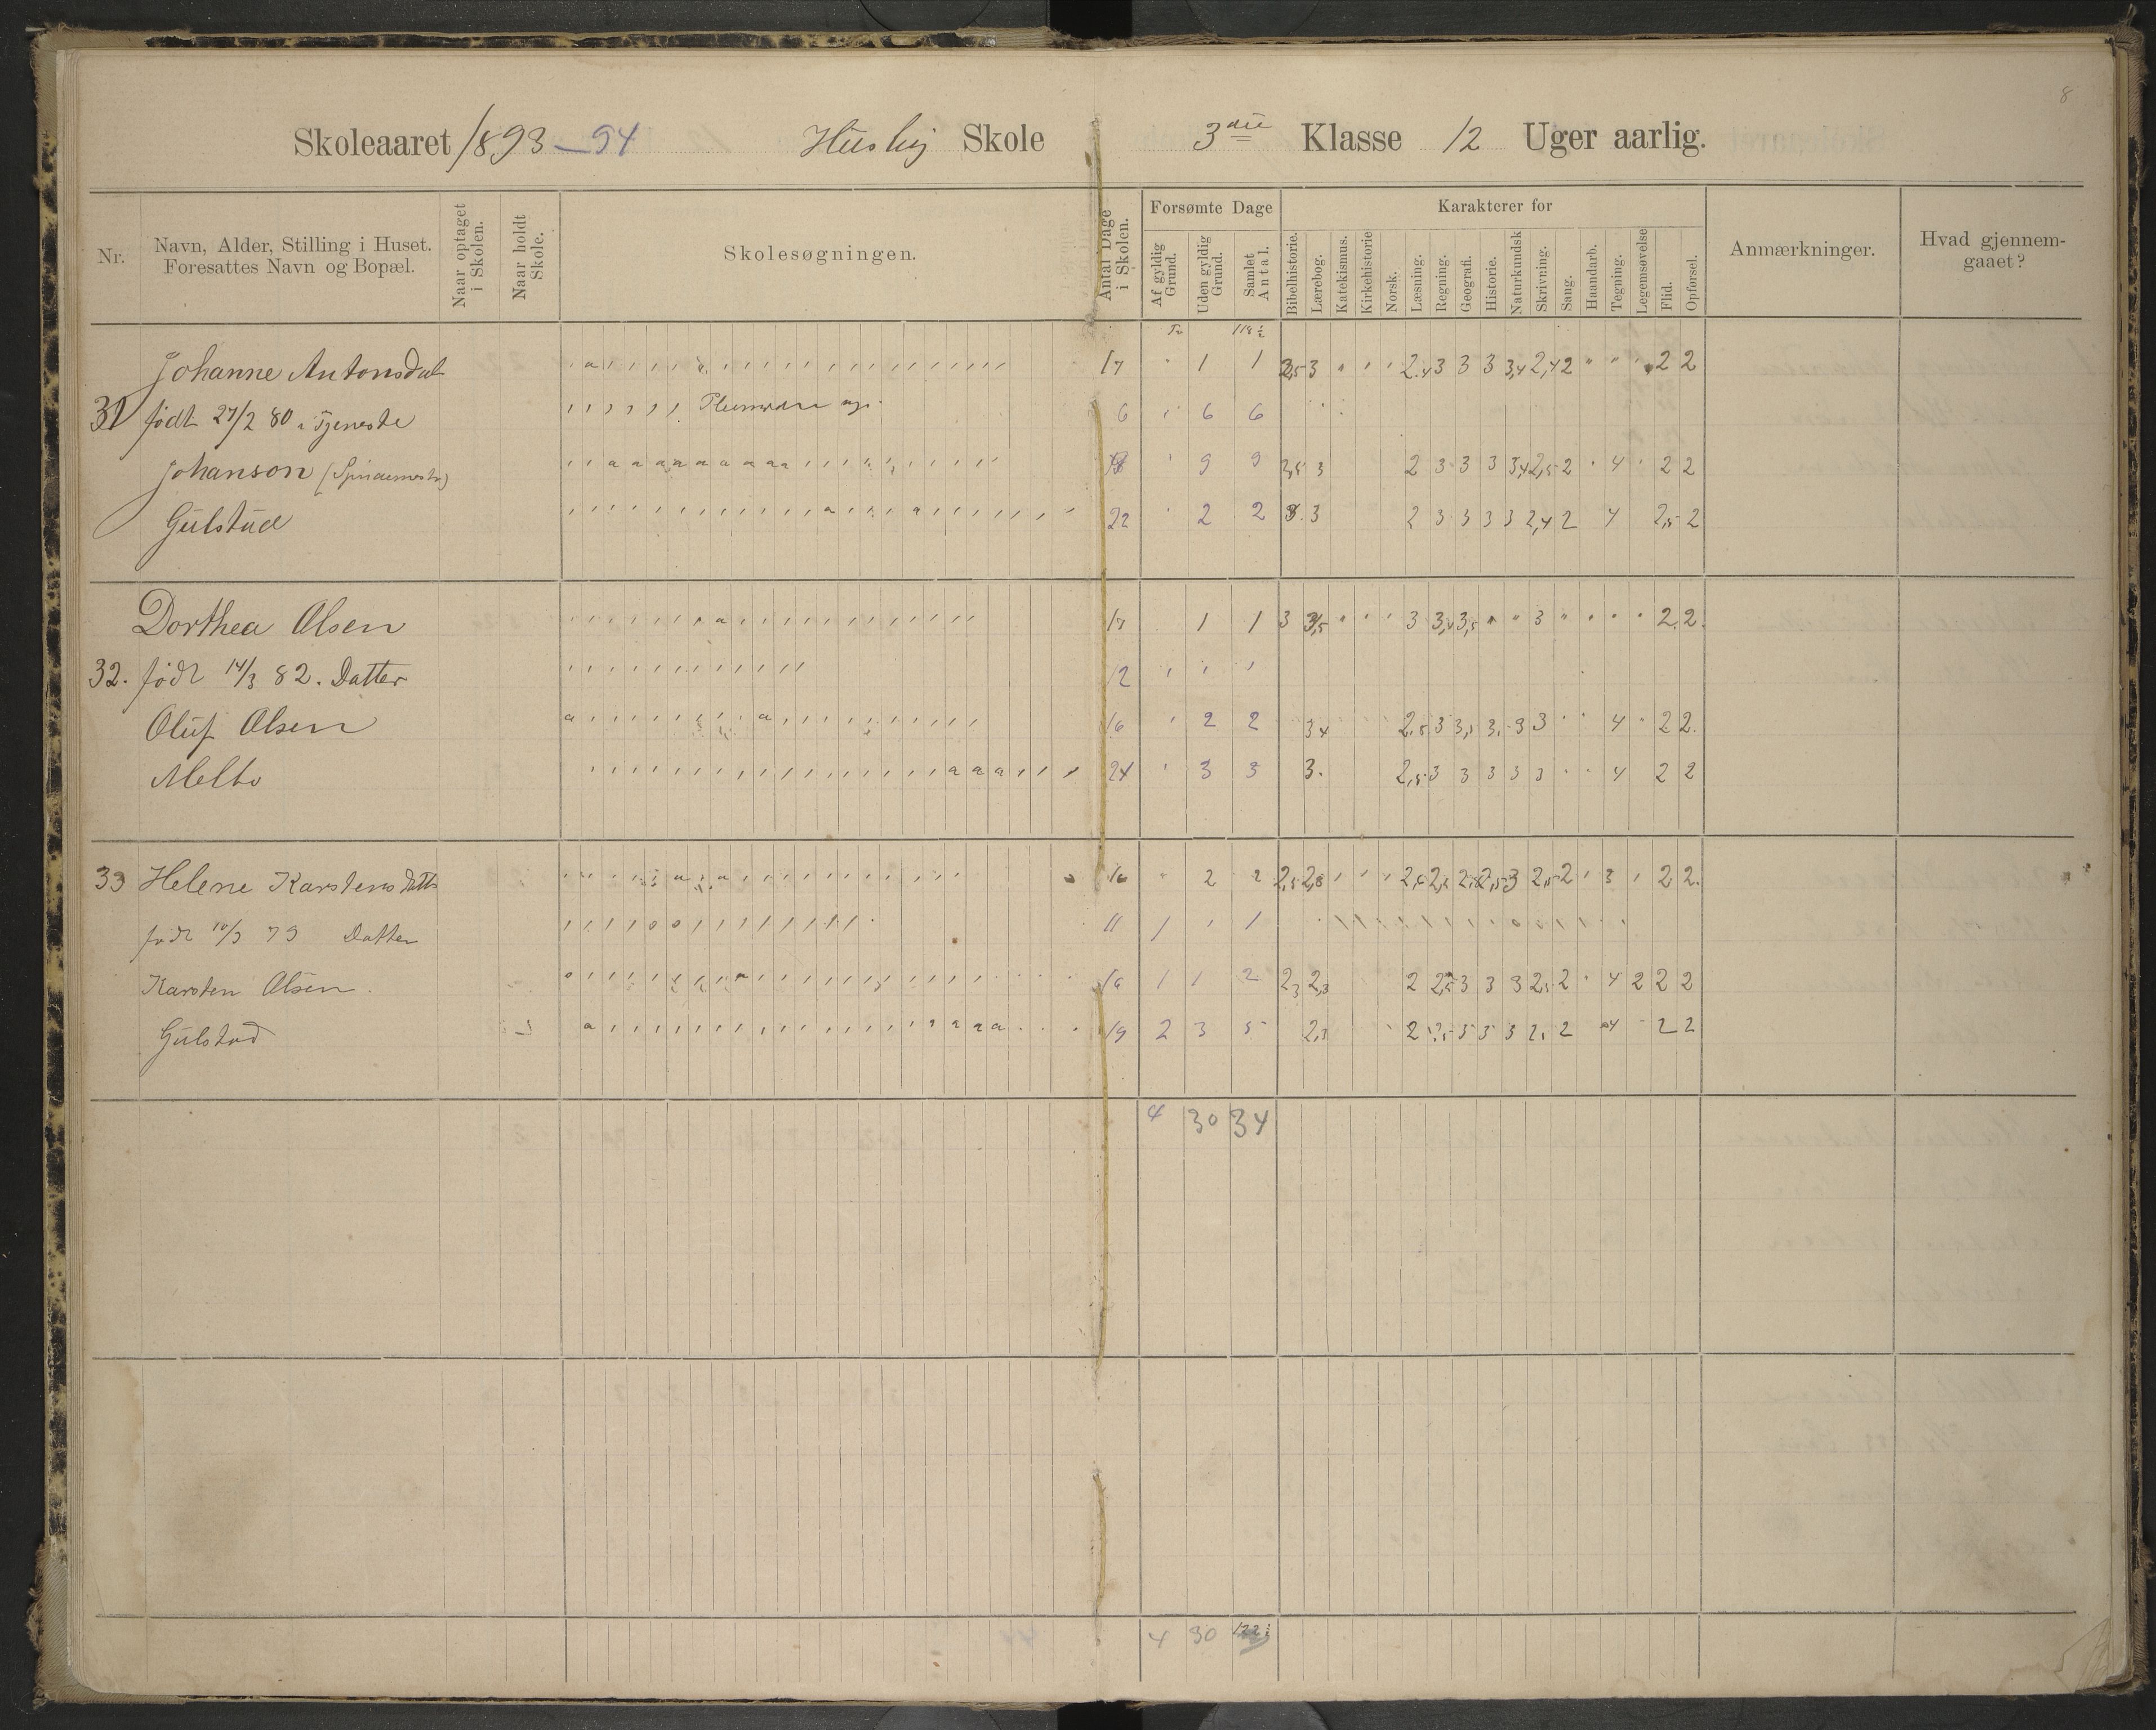 8
Skoleaaret 1893-94 Husby Skole 3die Klasse 12 Uger aarlig.
Nr. Navn, Alder, Stilling i Huset. Foresattes Navn og Bopæl. Naar optaget i Skolen. Naar holdt Skole. Skolesøgningen. Antal Dage i Skolen. Forsømte Dage Karakterer for Anmærkninger. Hvad gjennemgaaet?
Af gyldig Grund. Uden gyldig Grund. Samlet Antal. Bibelhistorie. Lærebog. Katekismus. Kirkehistorie Norsk. Læsning. Regning. Geografi. Historie. Naturkundsk Skrivning. Sang. Haandarb. Tegning. Legemsøvelse Flid. Opførsel.
Johanne Antonsdat 17 1 1 2,5 3 2.4 3 3 3 3,4 2,4 2 2 2
31 født 27/2 80 i Tjeneste 6 6 6
Johanson 18 9 9 2,5 3 2 3 3 3 3,4 2,5 2 4 2 2
Gulstad 22 2 2 3. 3 2 3 3 3 3 2,4 2 4 2,5 2
Dorthea Olsen 17 1 1 3 3,5 3 3,4 3,5 3 2. 2.
32. født 14/3 82. Datter 12
Oluf Olsen 16 2 2 3 4 2,5 3 3, 3. 3 3 4 2 2.
Melbo 24 3 3 3. 2,5 3 3 3 3 3 4 2 2
33 Helene Karstensdatt 16 2 2 2,5 2,8 2,5 3 2,5 2 3 2 2.
født 10/3 79 Datter 11 1 1
Karsten Olsen. 16 1 1 2 2,3 2,3 2 2,5 3 3 3 2,5 2 4 2 2 2
Gulstad 19 2 3 5 2,3 2 3 3 2, 2 4 2 2
4 30 34
4 30 122